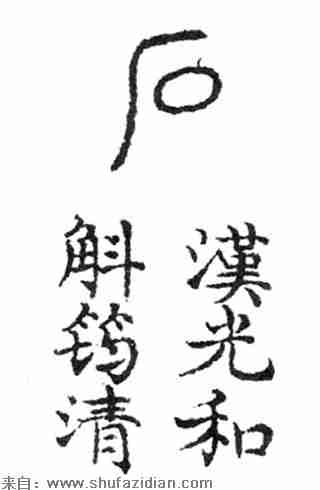 石
漢光和
斛筠清
来自：www.shufazidian.com